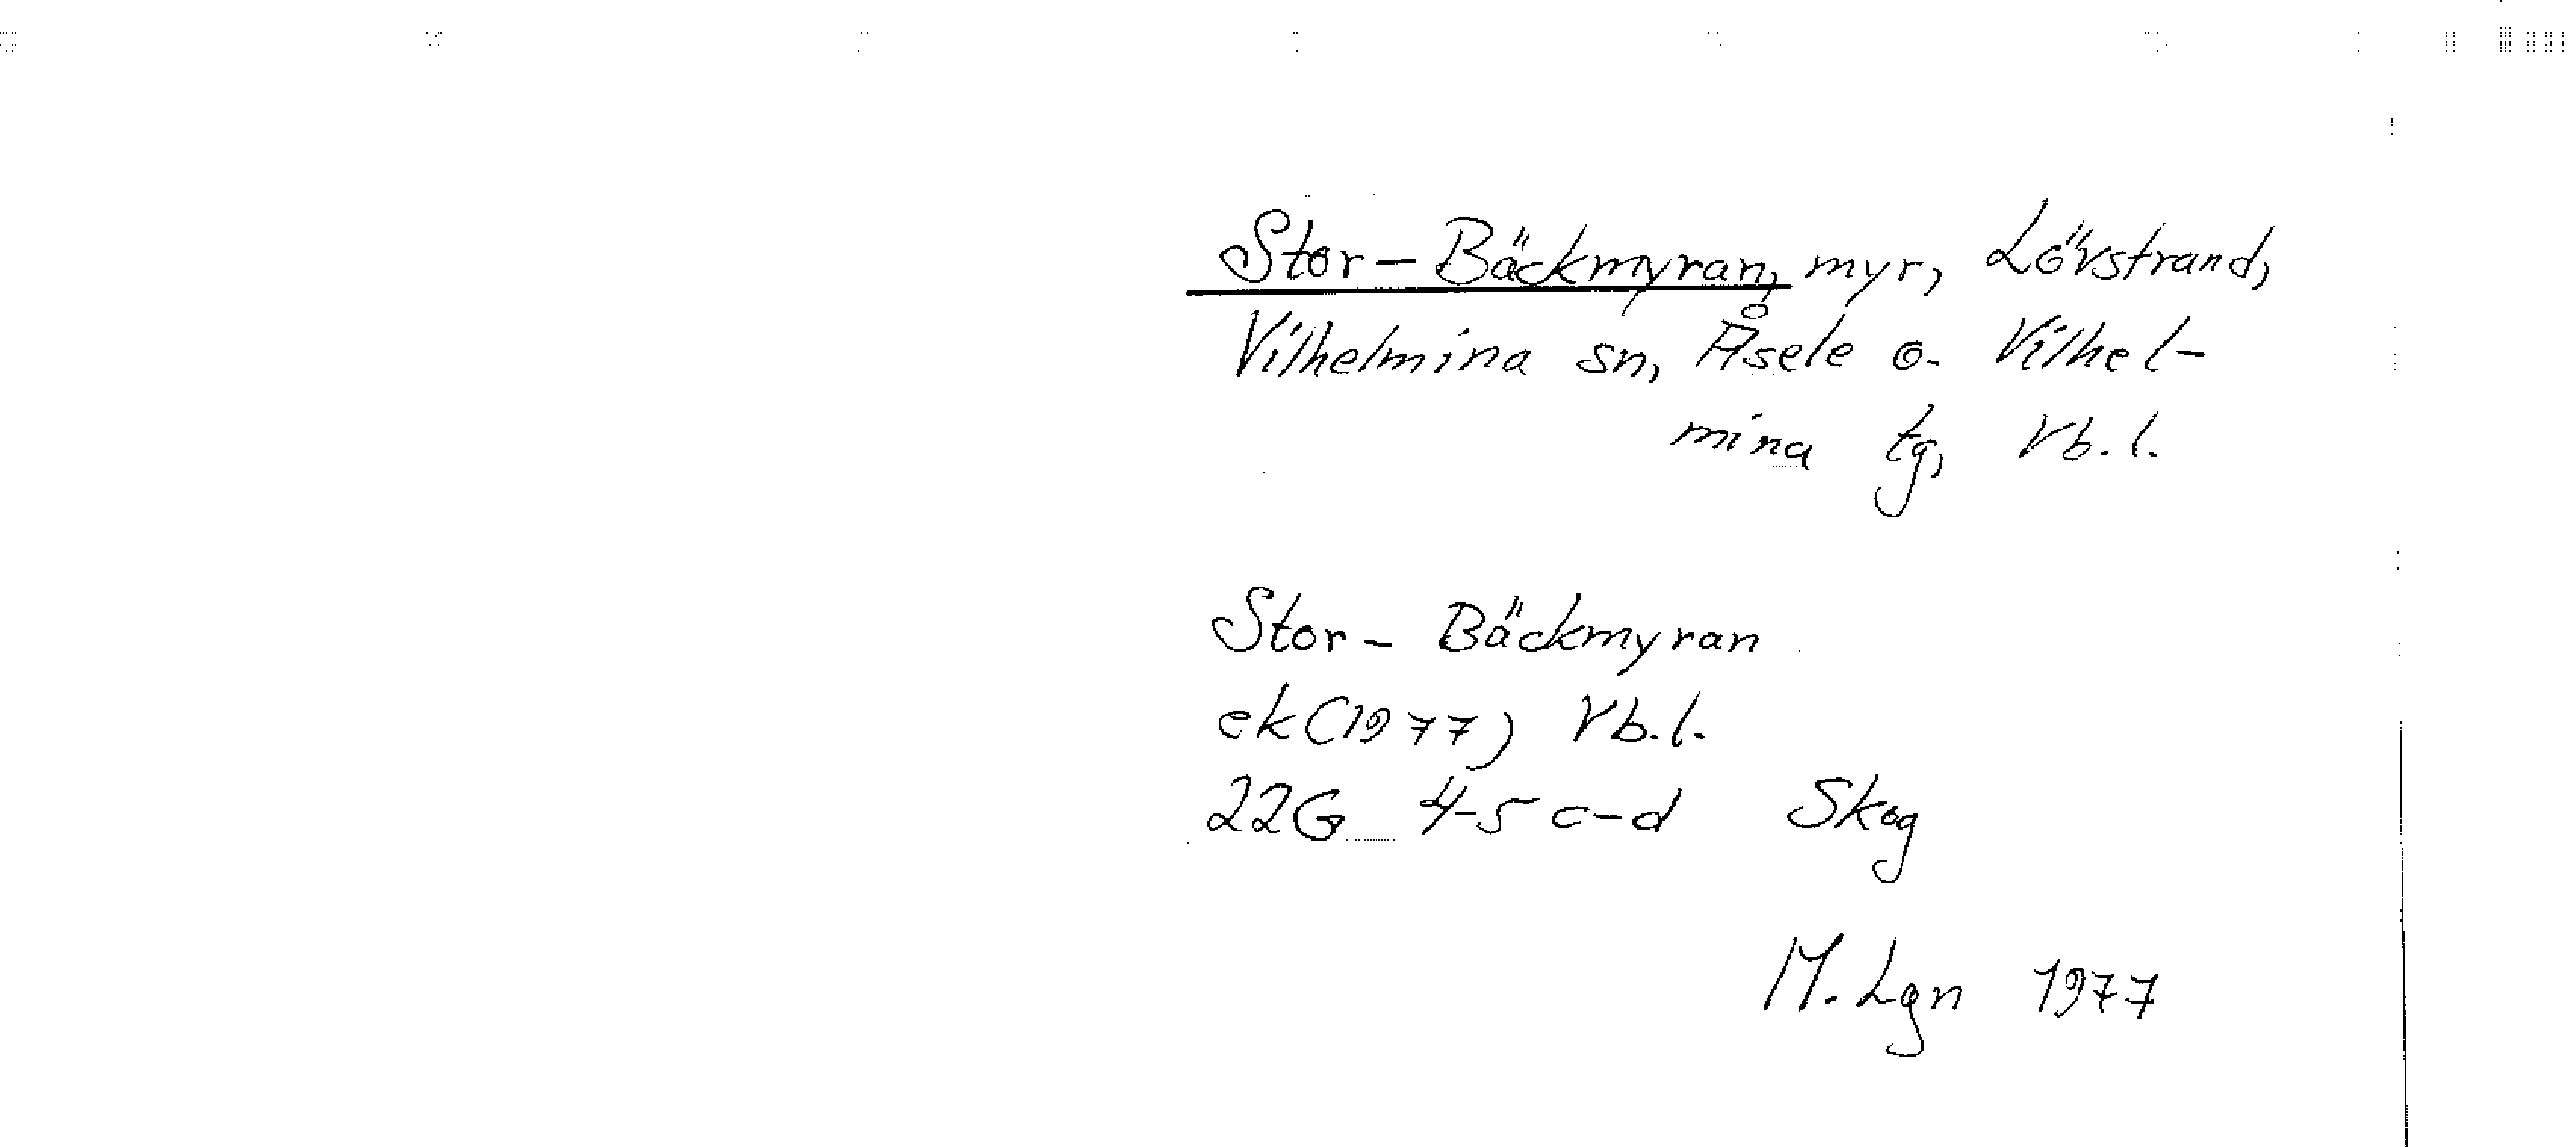 Stor-Bäckmyran, myr, Lövstrand,
Vilhelmina sn, Åsele o. Vilhel-
mina tg, Vb.l.
Stor- Bäckmyran
ek(1977) Vb.l.
22G 4-5 c-d Skog
M. Lgn 1977